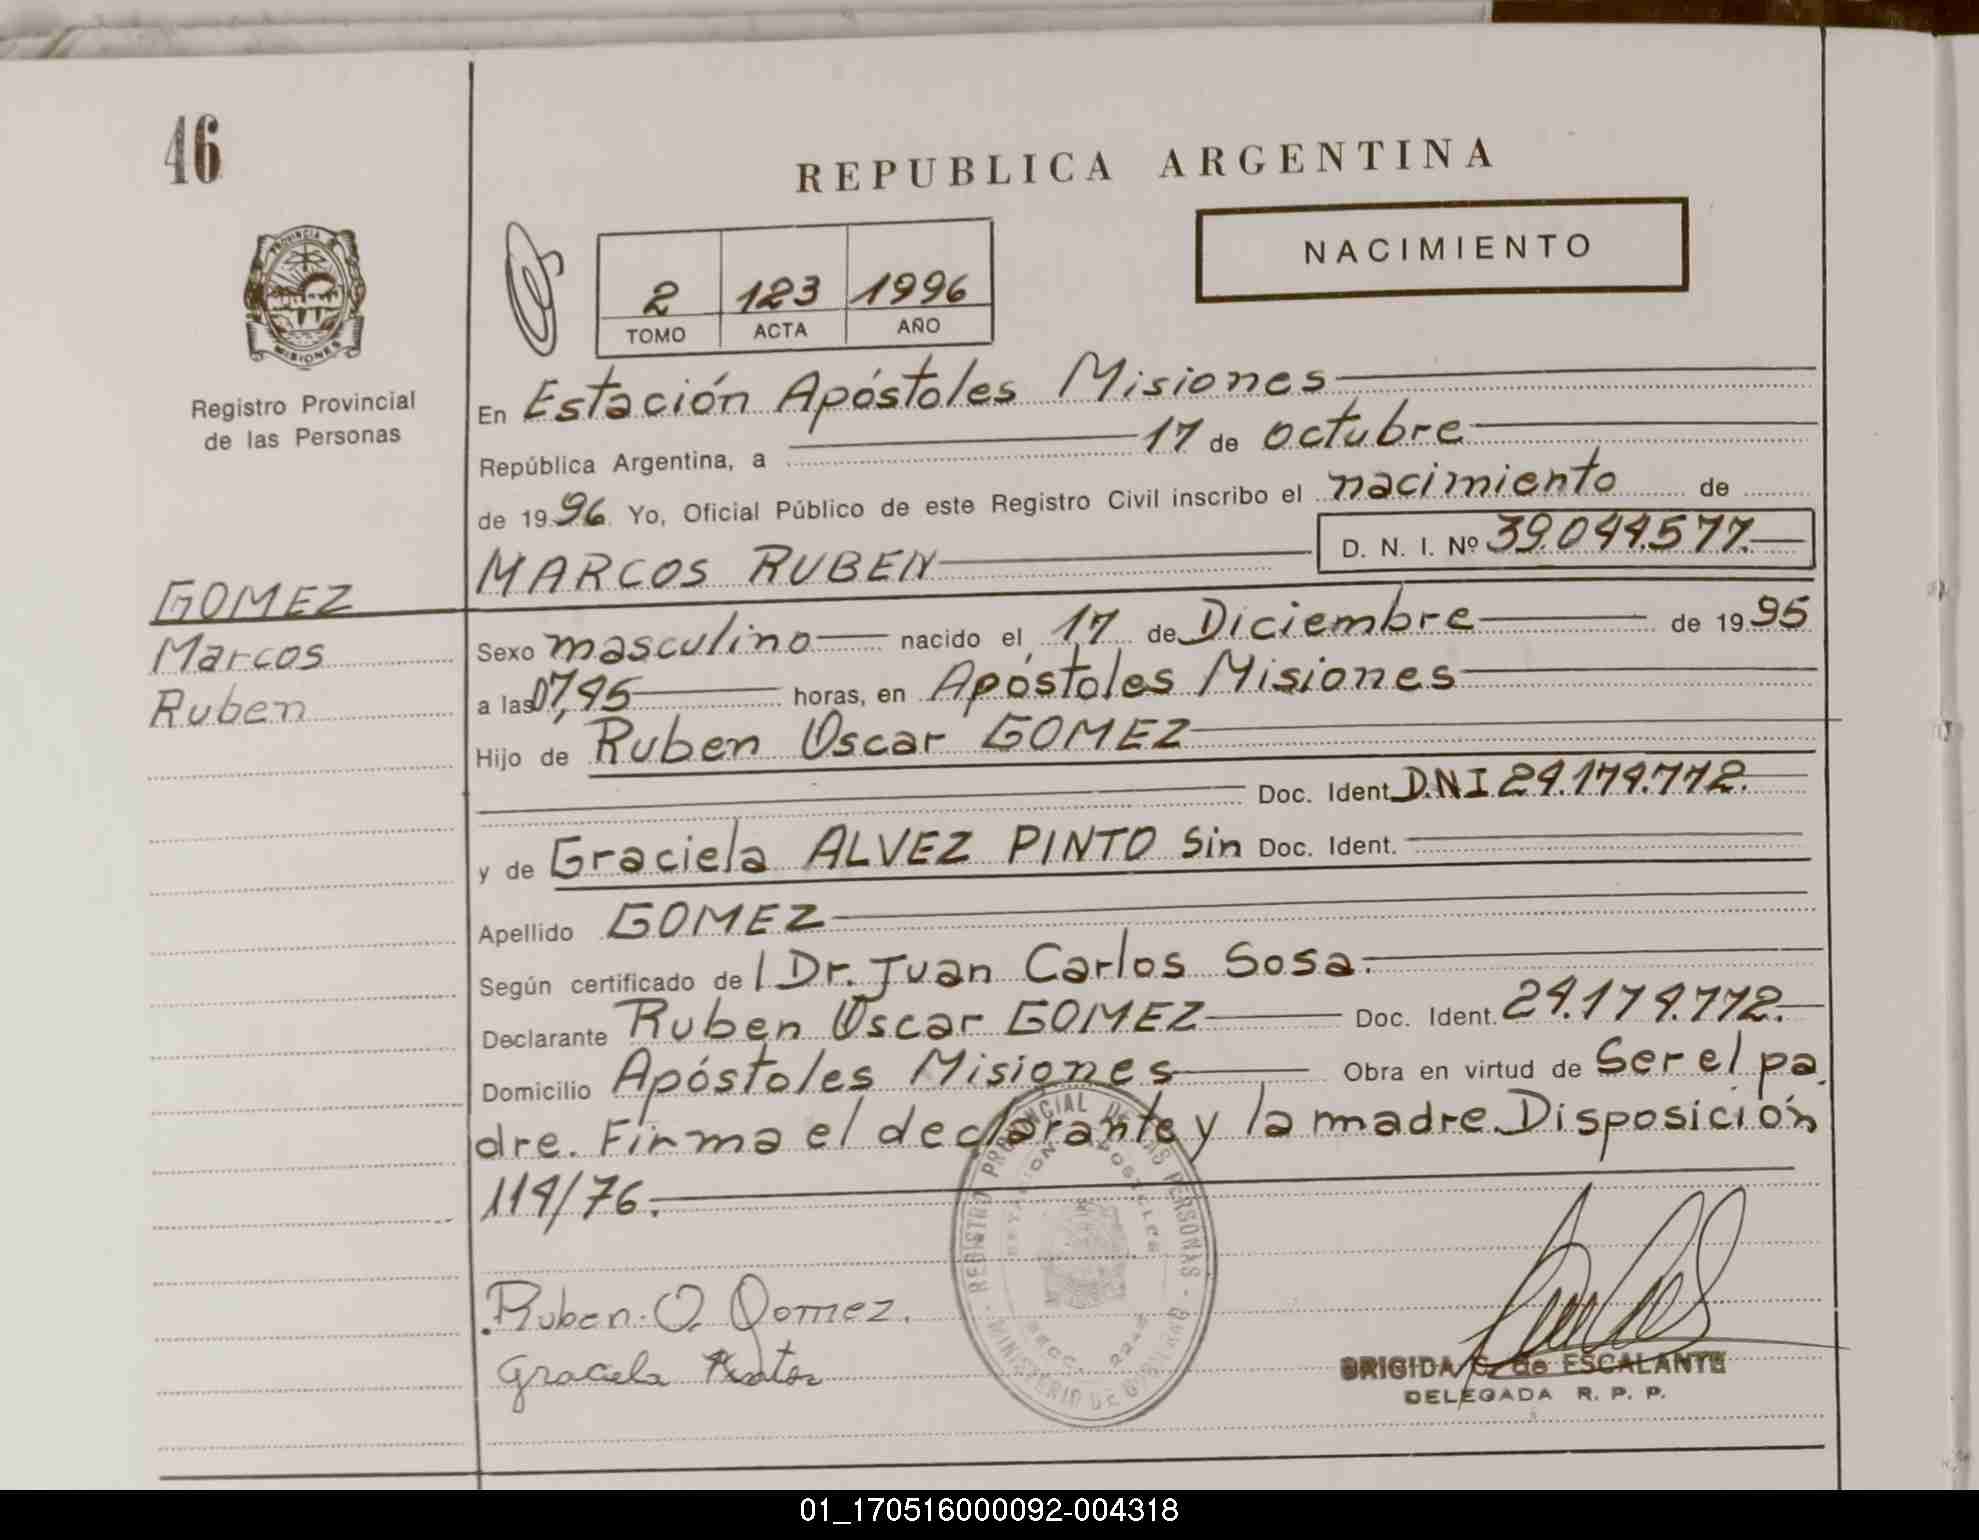 46
REPUBLICA ARGENTINA
NACIMIENTO
2 123 1996
TOMO ACTA AÑO
PROVINCIA DE
MISIONES
Registro Provincial
de las Personas
En Estación Apóstoles Misiones
República Argentina, a 17 de octubre
de 1996 Yo, Oficial Público de este Registro Civil inscribo el nacimiento de
MARCOS RUBEN D. N. I. Nº 39.044.577.
GOMEZ
Marcos
Ruben
Sexo masculino nacido el 17 de Diciembre de 1995
a las 07,45 horas, en Apóstoles Misiones
Hijo de Ruben Oscar GOMEZ
Doc. Ident. D.N.I. 24.174.772.
y de Graciela ALVEZ PINTO Sin Doc. Ident.
Apellido GOMEZ
Según certificado de l Dr. Juan Carlos Sosa.
Declarante Ruben Oscar GOMEZ Doc. Ident. 24.174.772.
Domicilio Apóstoles Misiones Obra en virtud de Ser el pa
dre. Firma el declarante y la madre. Disposición
114/76.
REGISTRO PROVINCIAL DE LAS PERSONAS
MINISTERIO DE GOBIERNO
Ruben. O. Gomez.
Graciela
BRIGIDA G. de ESCALANTE
DELEGADA R. P. P.
01_170516000092-004318